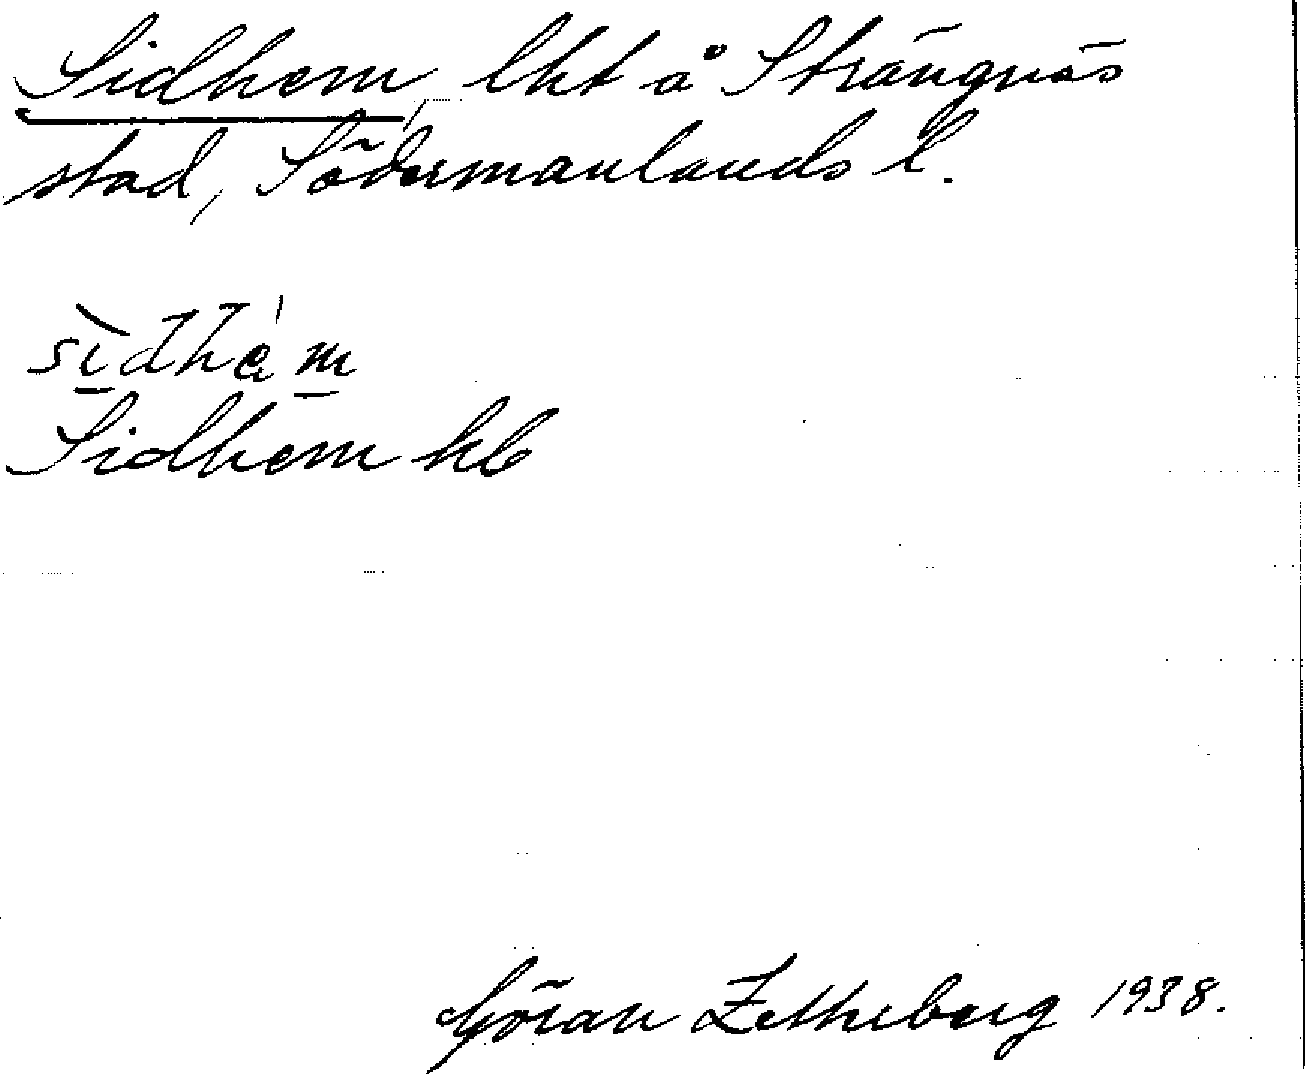 Sidhem, lht å Strängnäs
stad, Södermanlands l.
Sidhem hb
Göran Zetherberg 1938.